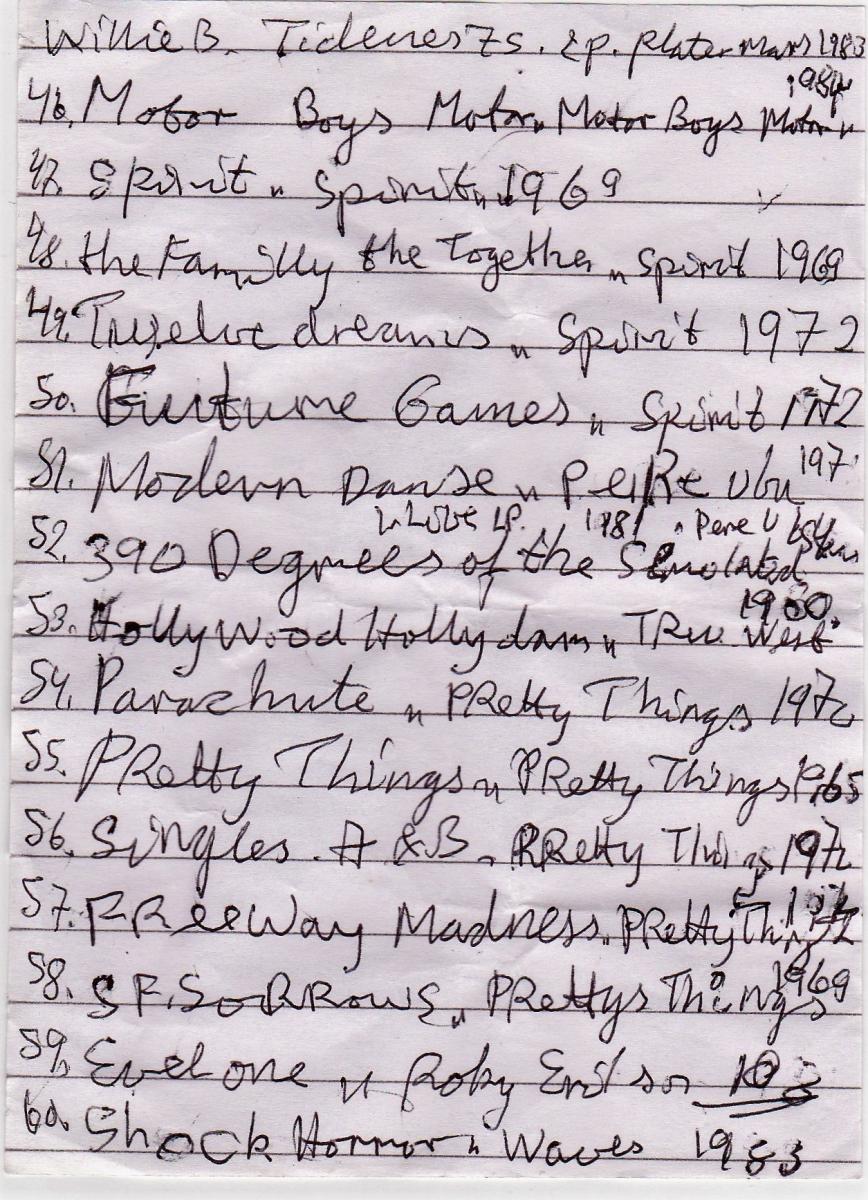 Willie B. Tidenes 7s. Ep. plater mars 1983
1984
46. Motor Boys Motor " Motor Boys Motor "
47. Spirit " Spirit " 1969
48. the Familly the Together " Spirit 1969
49. Twelve dreams " Spirit 1972
50. Furture Games " Spirit 1972
51. Modern Danse " Pere Ubu 197
" Live LP. 1981 " Pere Ubu
52. 390 Degrees of the
1980.
53. Hollywood Holly dam " TRue West
54. Parachute " PRetty Things 197
55. PRetty Things " PRetty Things 1965
56. Singles. A & B " PRetty Things 197
57. FReeway Madness. PRetty Things
58. SF. SoRRows " PRettys Things 1969
59. Evel one " Roky Erikson
60. Shock Horror " Waves 1983